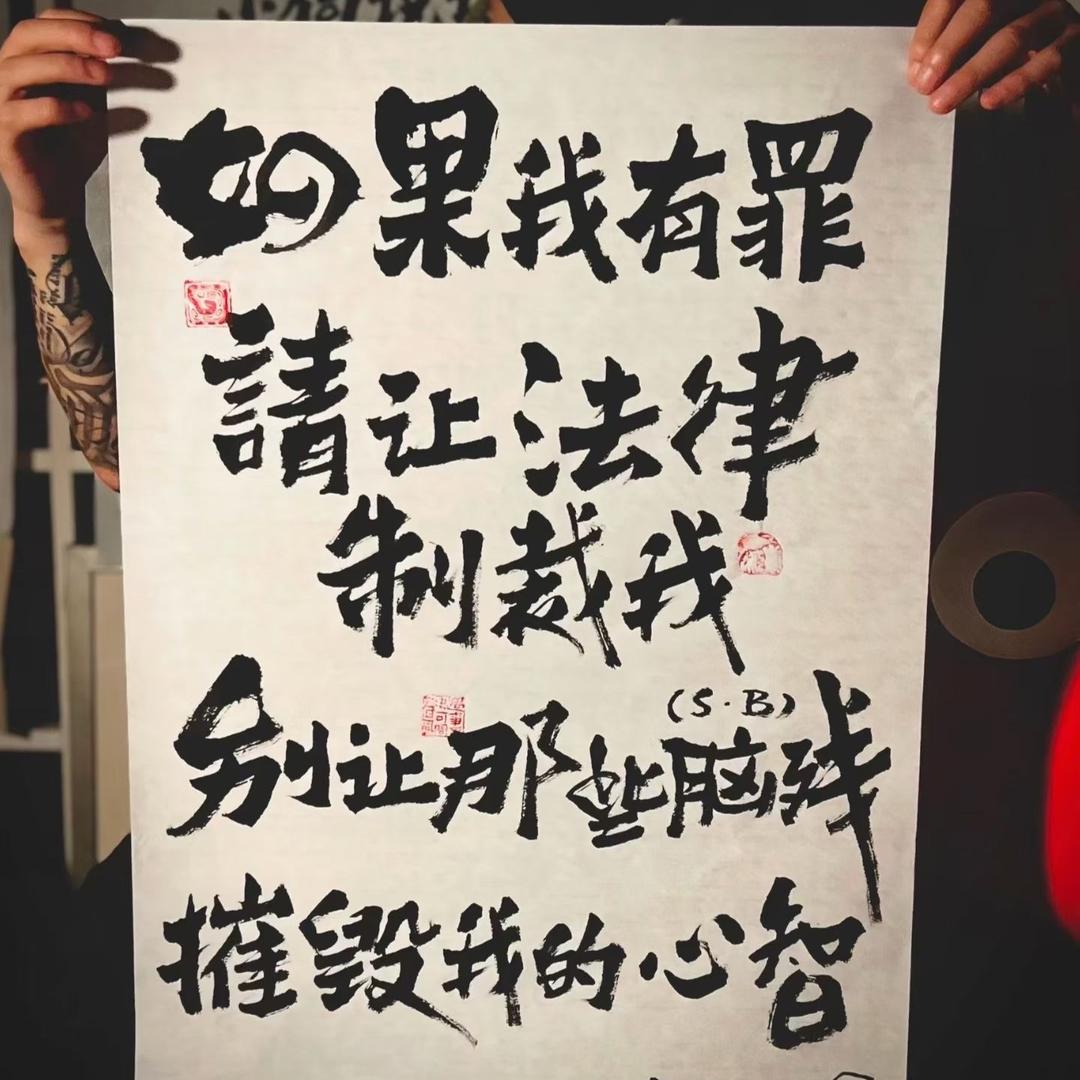 如果我有罪
請让法律
制裁我
别让那些脑残
(S·B)
摧毁我的心智